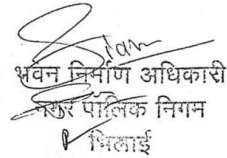 भवन निर्माण अधिकारी
नगर पालिक निगम
भिलाई